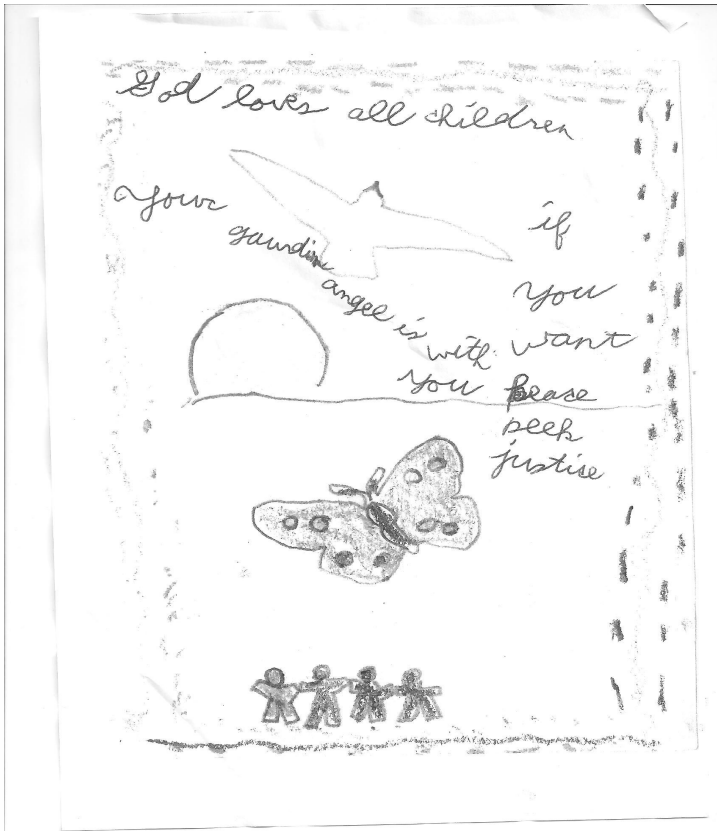 God loves all children
Your
gaurdin
angel is
with
you
if
you
want
peace
seek
justice